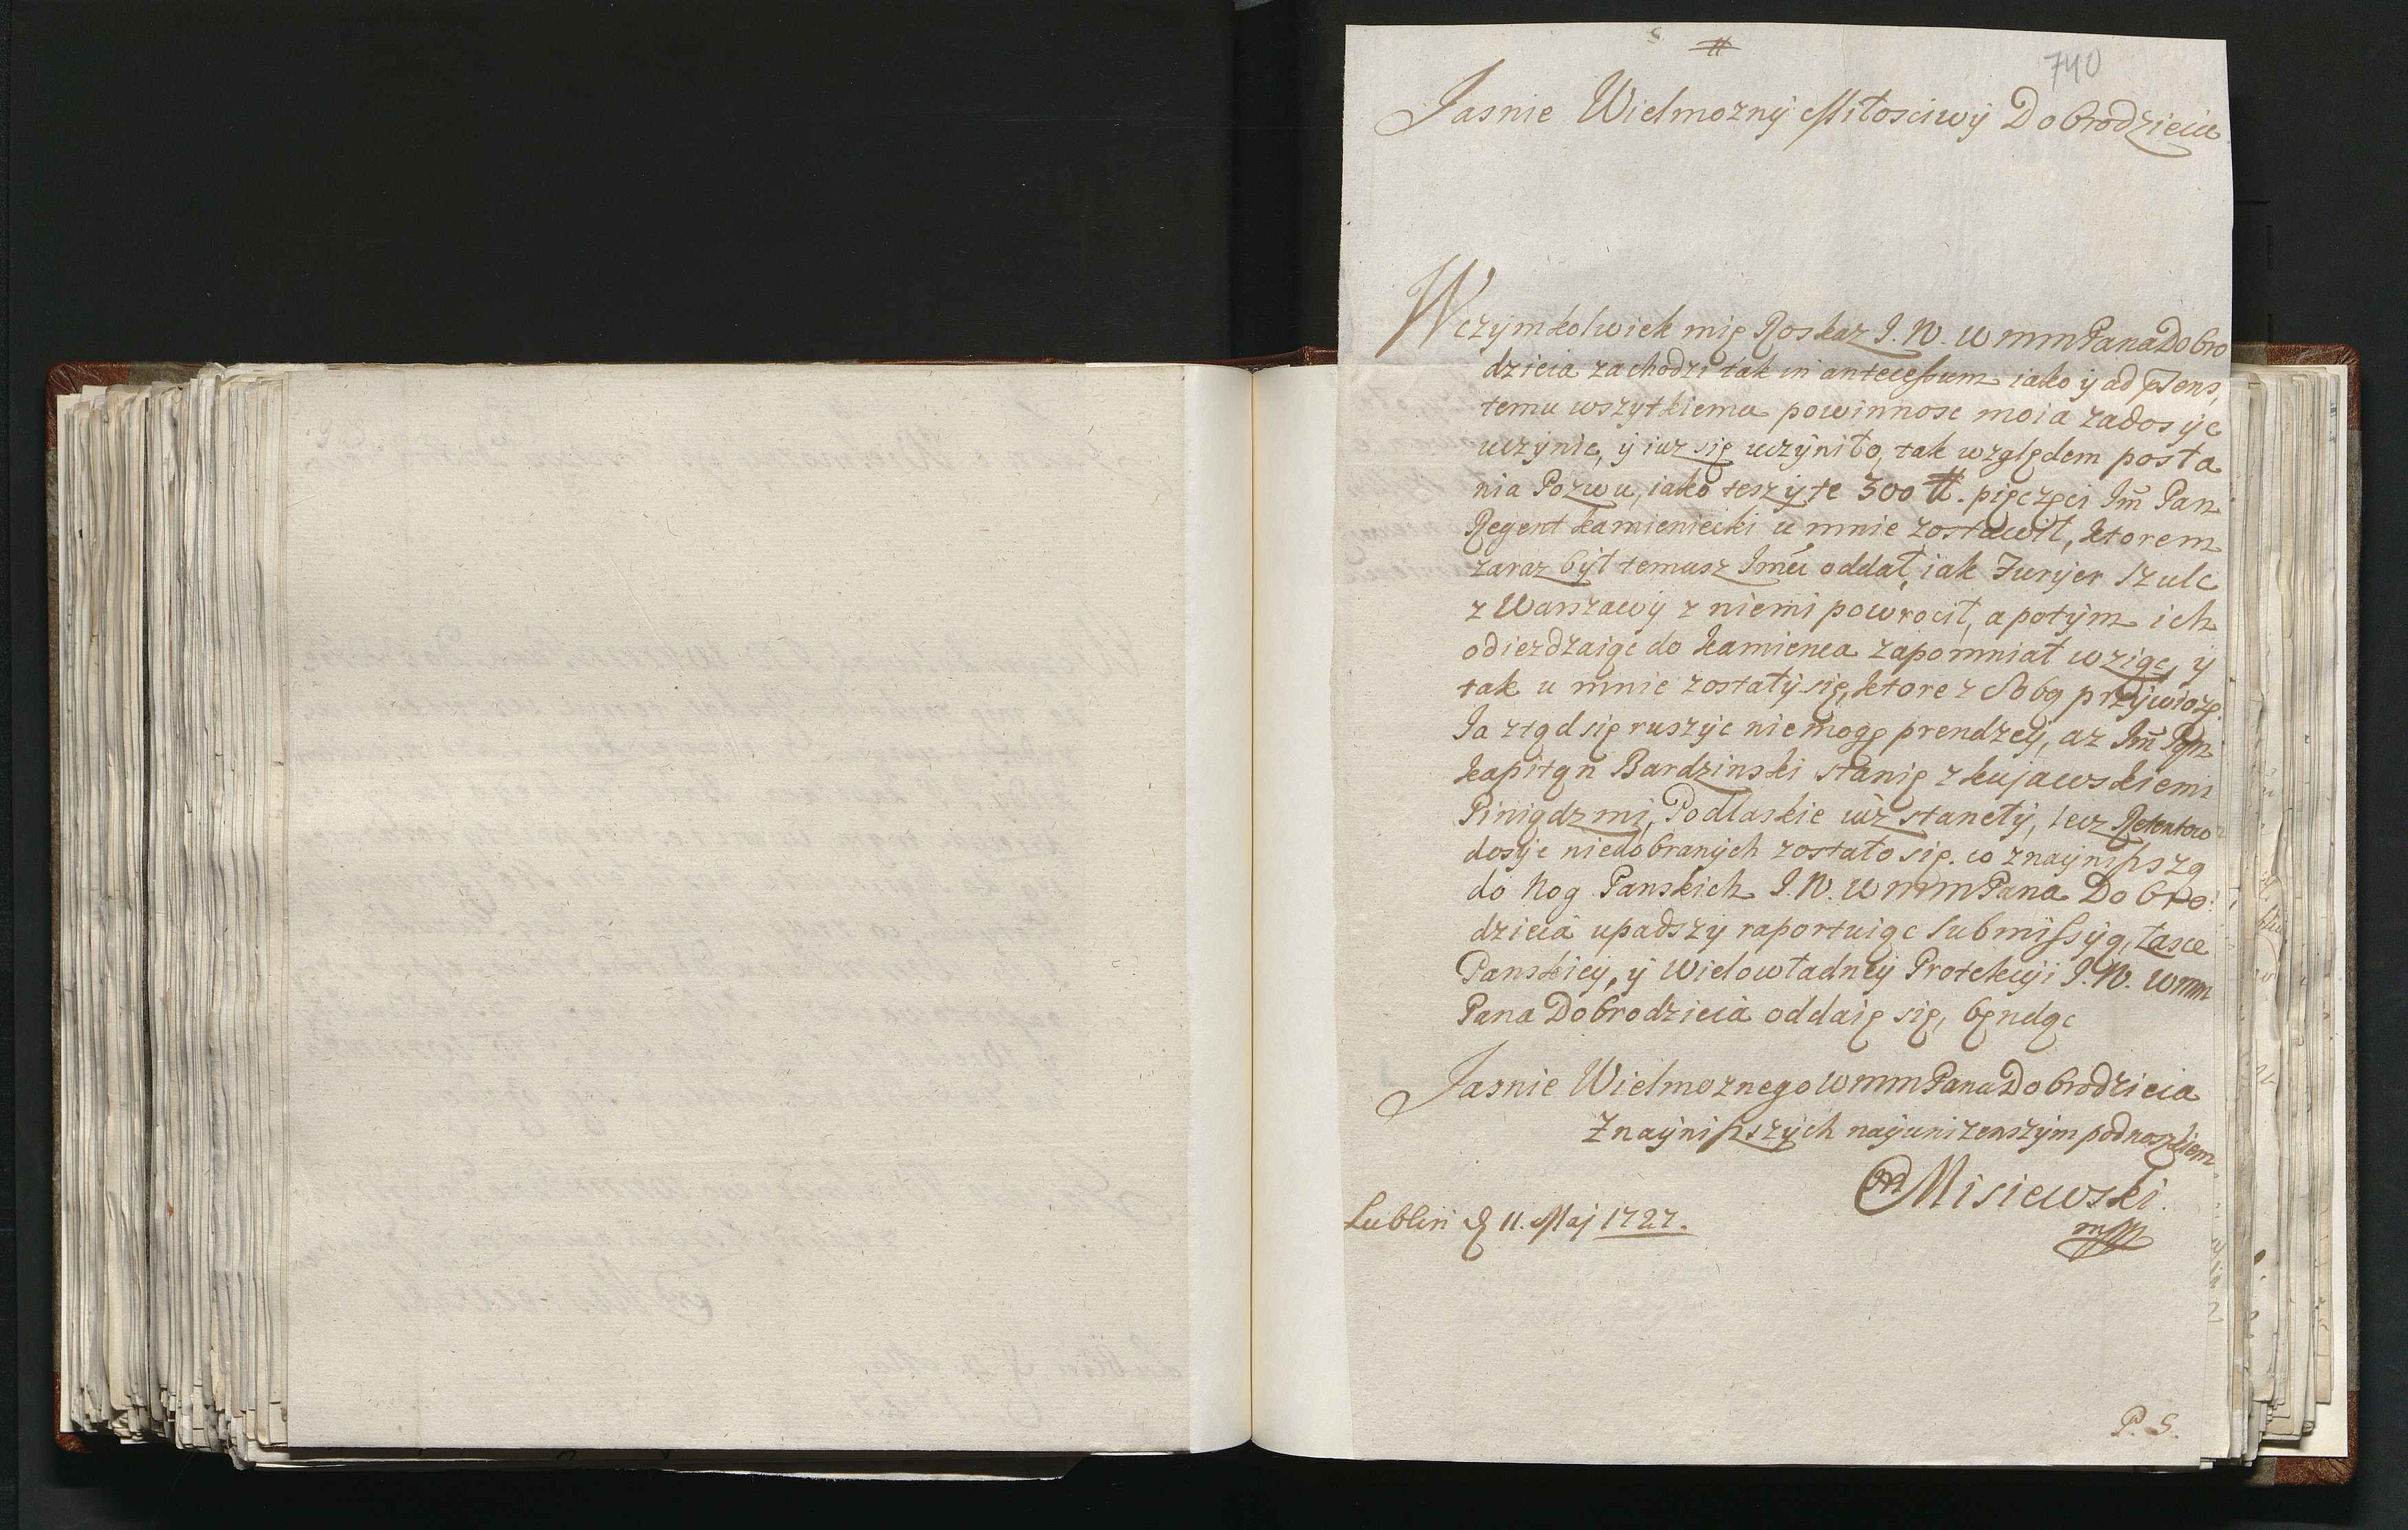 #
740
Jasnie Wielmozny Miłosciwy Dobrodzieia
Wczymkolwiek mię Roskaz J. W. WmmPanaDobro
dzieia zachodzi tak in antecessum iako ÿ ad psens,
temu wszytkiemu powinnosc moia zadosÿc
uczÿnic, ÿ iuz się uczÿniło, tak względem posła
nia Pozwu, iako tesz ÿ te 300 #. pięczęci Jm̃ Pan
Regent kamieniecki u mnie zostawił, ktorem
zaraz był temusz Jmẽu oddał, iak Furÿer Szulc
z Warszawÿ z niemi powrocił, a potÿm ich
odiezdzaiąc do kamienca zapomniał wziąc, ÿ
tak u mnie zostałÿ się, ktore z Sobą przÿwiozę.
Ia ztąd się ruszÿc niemogę prendzeÿ, az Jm̃ Pąn
kapitąn Bardzinski stanię z kujawskiemi
Piniądzmi, Podlaskie iuz stanełÿ, lecz Retentow
dosÿc niedobranÿch zostało się. co znaÿnisszą
do Nog Panskich J. W. WmmPana Dobro:
dzieia upadszÿ raportuiąc submissÿą, Łasce
Panskieÿ, ÿ Wielowładneÿ Protekcÿi J. W. Wmm
Pana Dobrodzieia oddaię się, będąc
Jasnie Wielmoznego WmmPanaDobrodzieia
Znaÿnisszÿch naÿunizenszÿm podnoszkiem
Misiewski.
mpp
Lublin d 11. Maj 1727.
P. S.